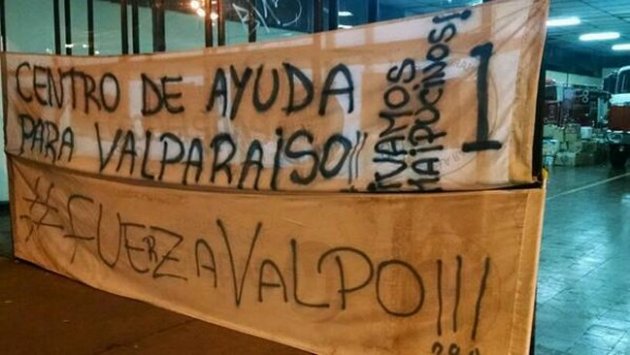 CENTRO DE AYUDA
PARA VALPARAISO!!
¡VAMOS
MAIPUCINOS!
1
#FUERZAVALPO!!!